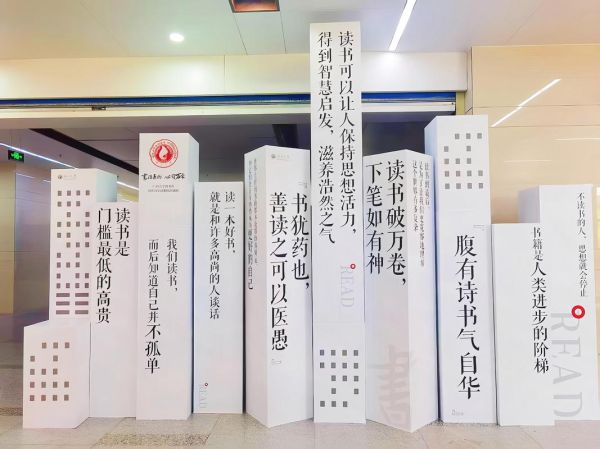 读书是
门槛最低的高贵
我们读书，
而后知道自己并不孤单
读一本好书，
就是和许多高尚的人谈话
READ
书犹药也，
善读之可以医愚
读书可以让人保持思想活力，
得到智慧启发，滋养浩然之气
READ
读书破万卷，
下笔如有神
書
腹有诗书气自华
书籍是人类进步的阶梯
不读书的人，思想就会停止
READ